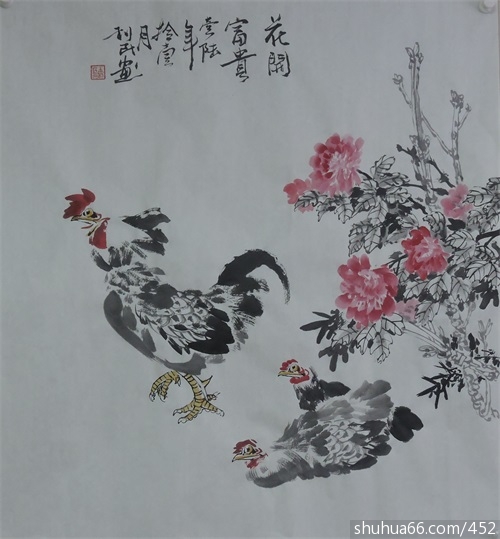 花開
富貴
壹陆
年
拾壹
月
利民畫
shuhua66.com/452